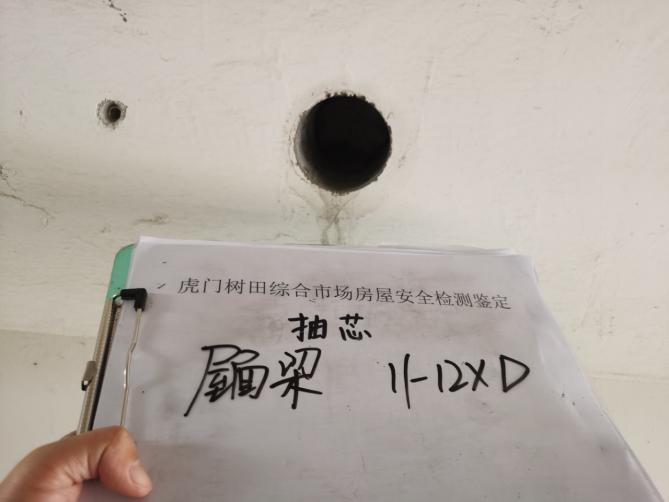 虎门树田综合市场房屋安全检测鉴定
抽芯
屋面梁 11-12×D